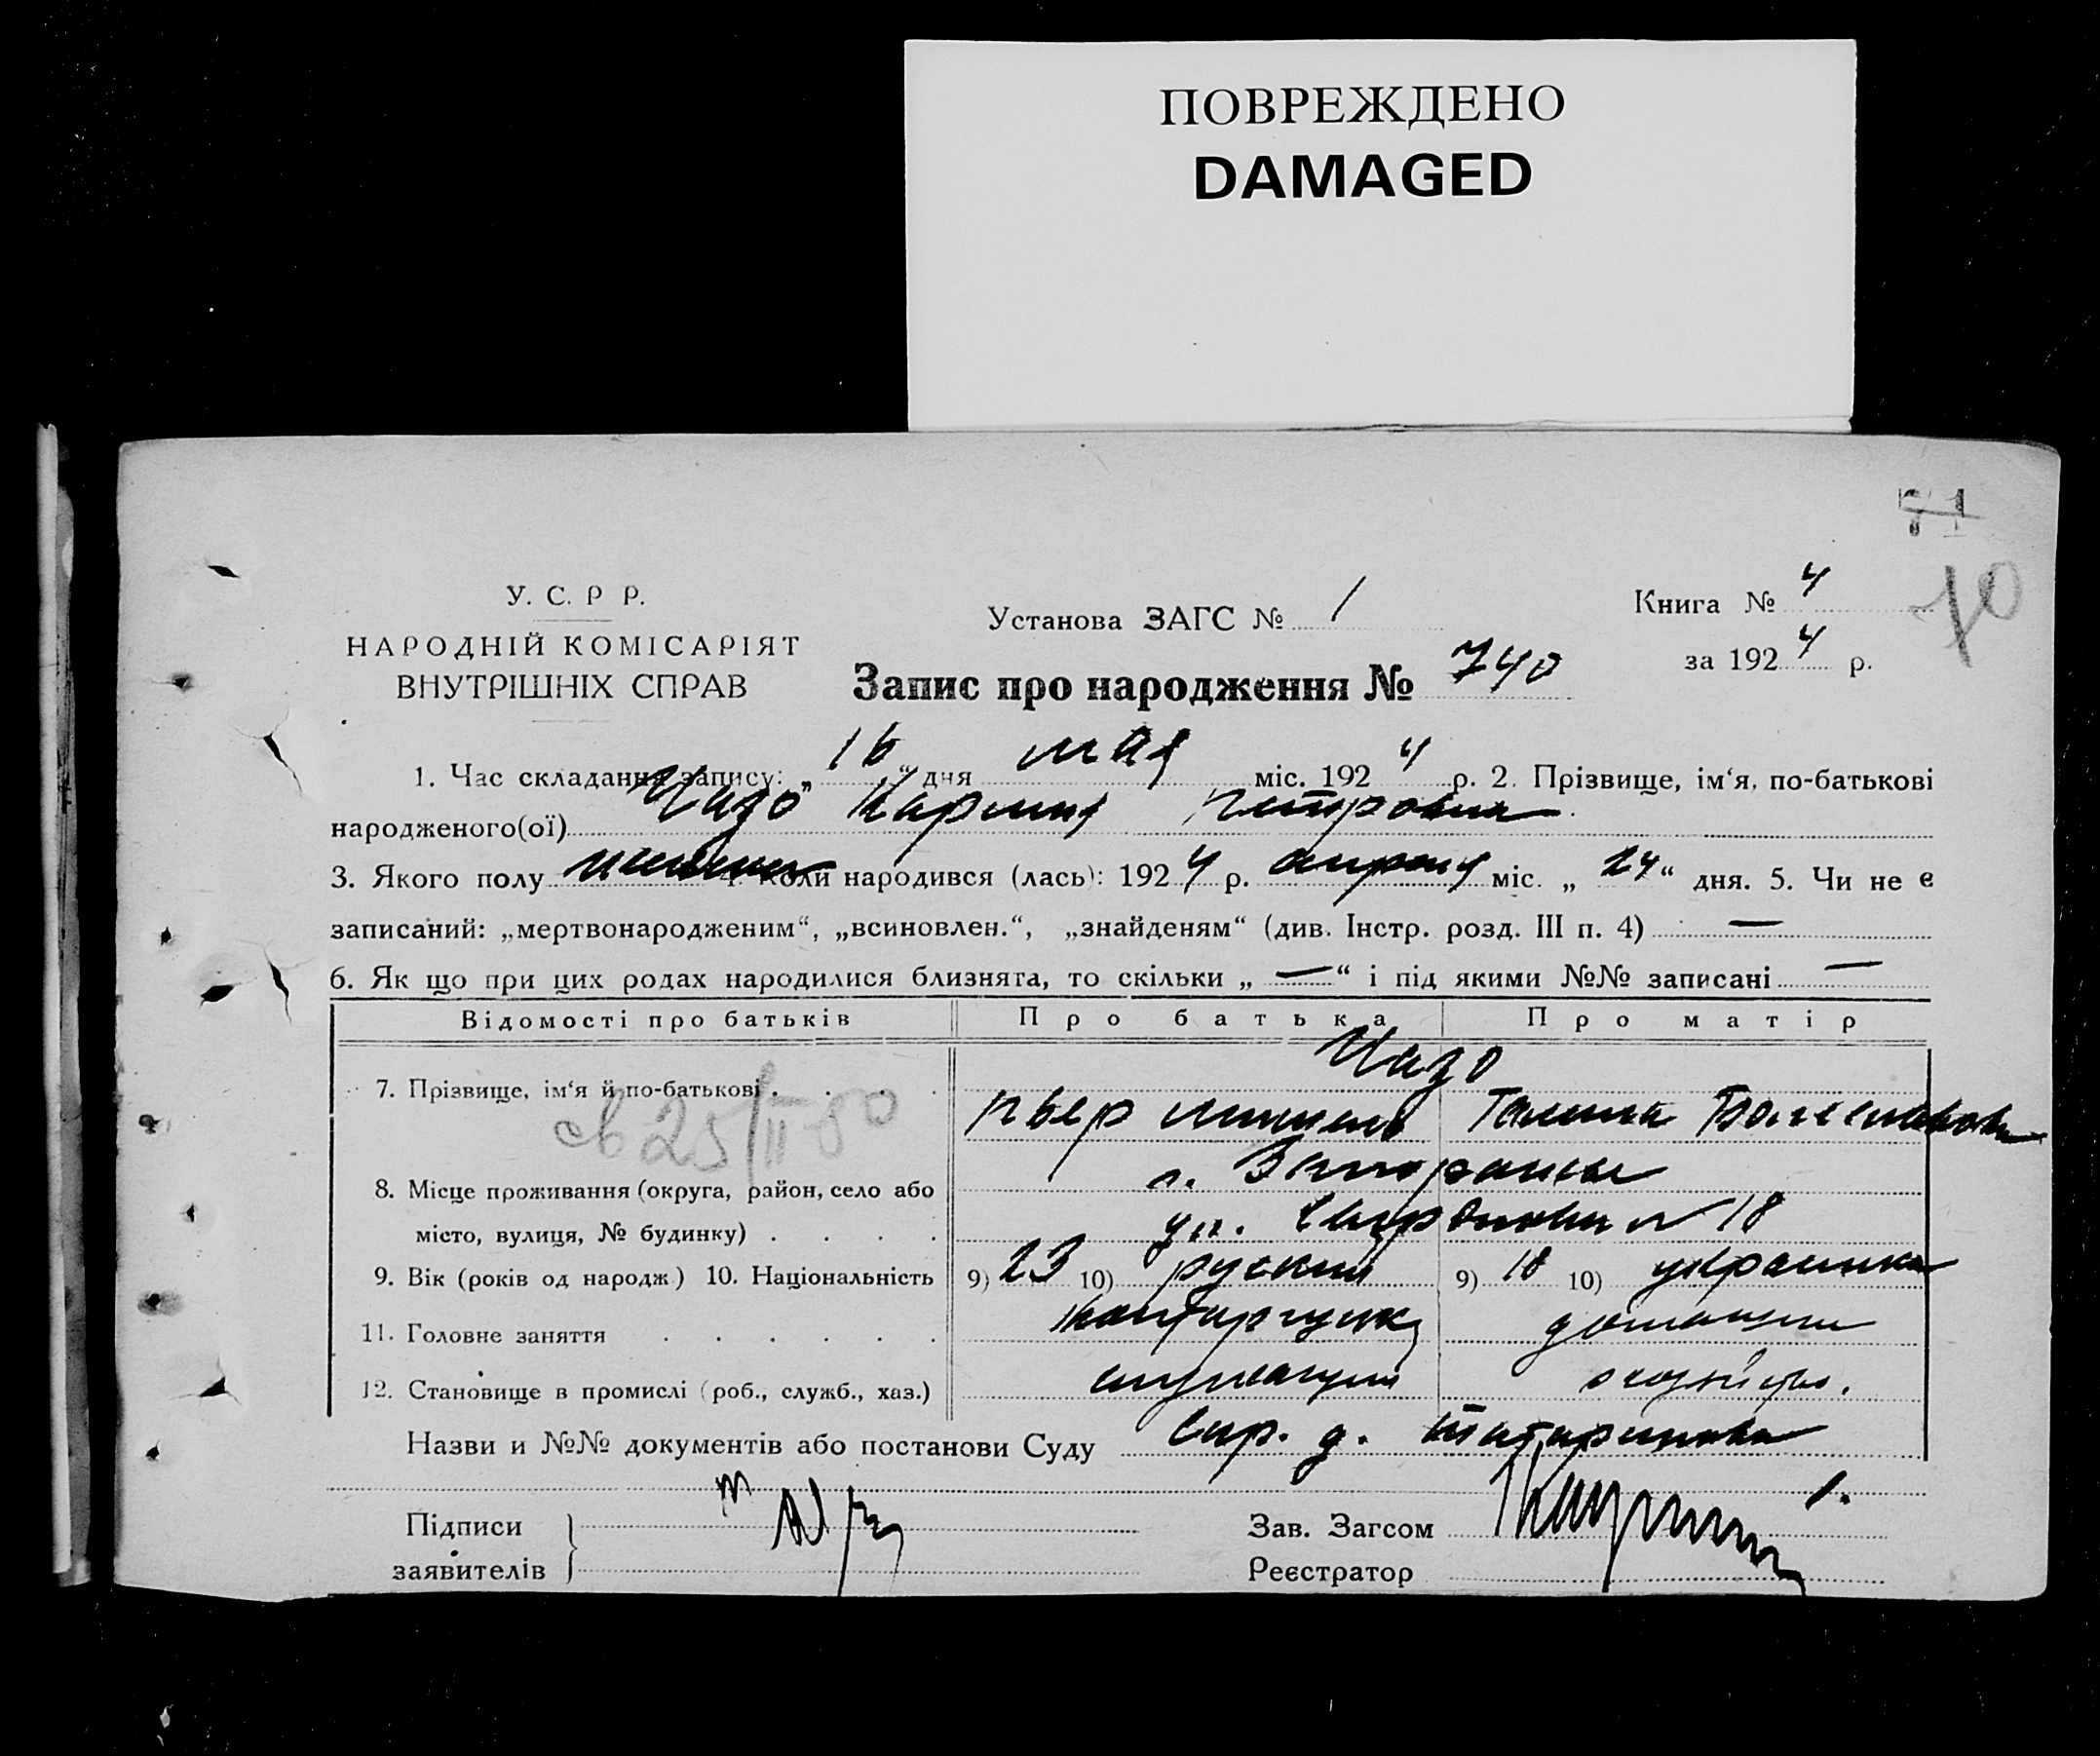 ПОВРЕЖДЕНО
DAMAGED
71
70
У. С. Р Р.
НАРОДНІЙ КОМІСАРІЯТ
ВНУТРІШНІХ СПРАВ
Установа ЗАГС № 1
Книга № 4
за 1924 р.
Запис про народження № 740
1. Час складання запису: „16“ дня мая міс. 1924 р. 2. Прізвище, ім‘я, по-батькові
народженого(ої) Петровна
3. Якого полу 4. Коли народився (лась): 1924 р. апреля міс. „24“ дня. 5. Чи не є
записаний: „мертвонародженим“, „всиновлен.“, „знайденям“ (див. Інстр. розд. III п. 4) —
6. Як що при цих родах народилися близнята, то скільки „—“ і під якими №№ записані —
Відомості про батьків Про батька Про матір
7. Прізвище, ім‘я й по-батькові
Пьер Галина
8. Місце проживання (округа, район, село або
місто, вулиця, № будинку) ул. № 18
9. Вік (років од народж.) 10. Національність 9) 23 10) руский 9) 18 10) украинка
11. Головне заняття домашнее
12. Становище в промислі (роб., служб., хаз.) служащий
Назви и №№ документів або постанови Суду
Підписи
заявителів
Зав. Загсом
Реєстратор